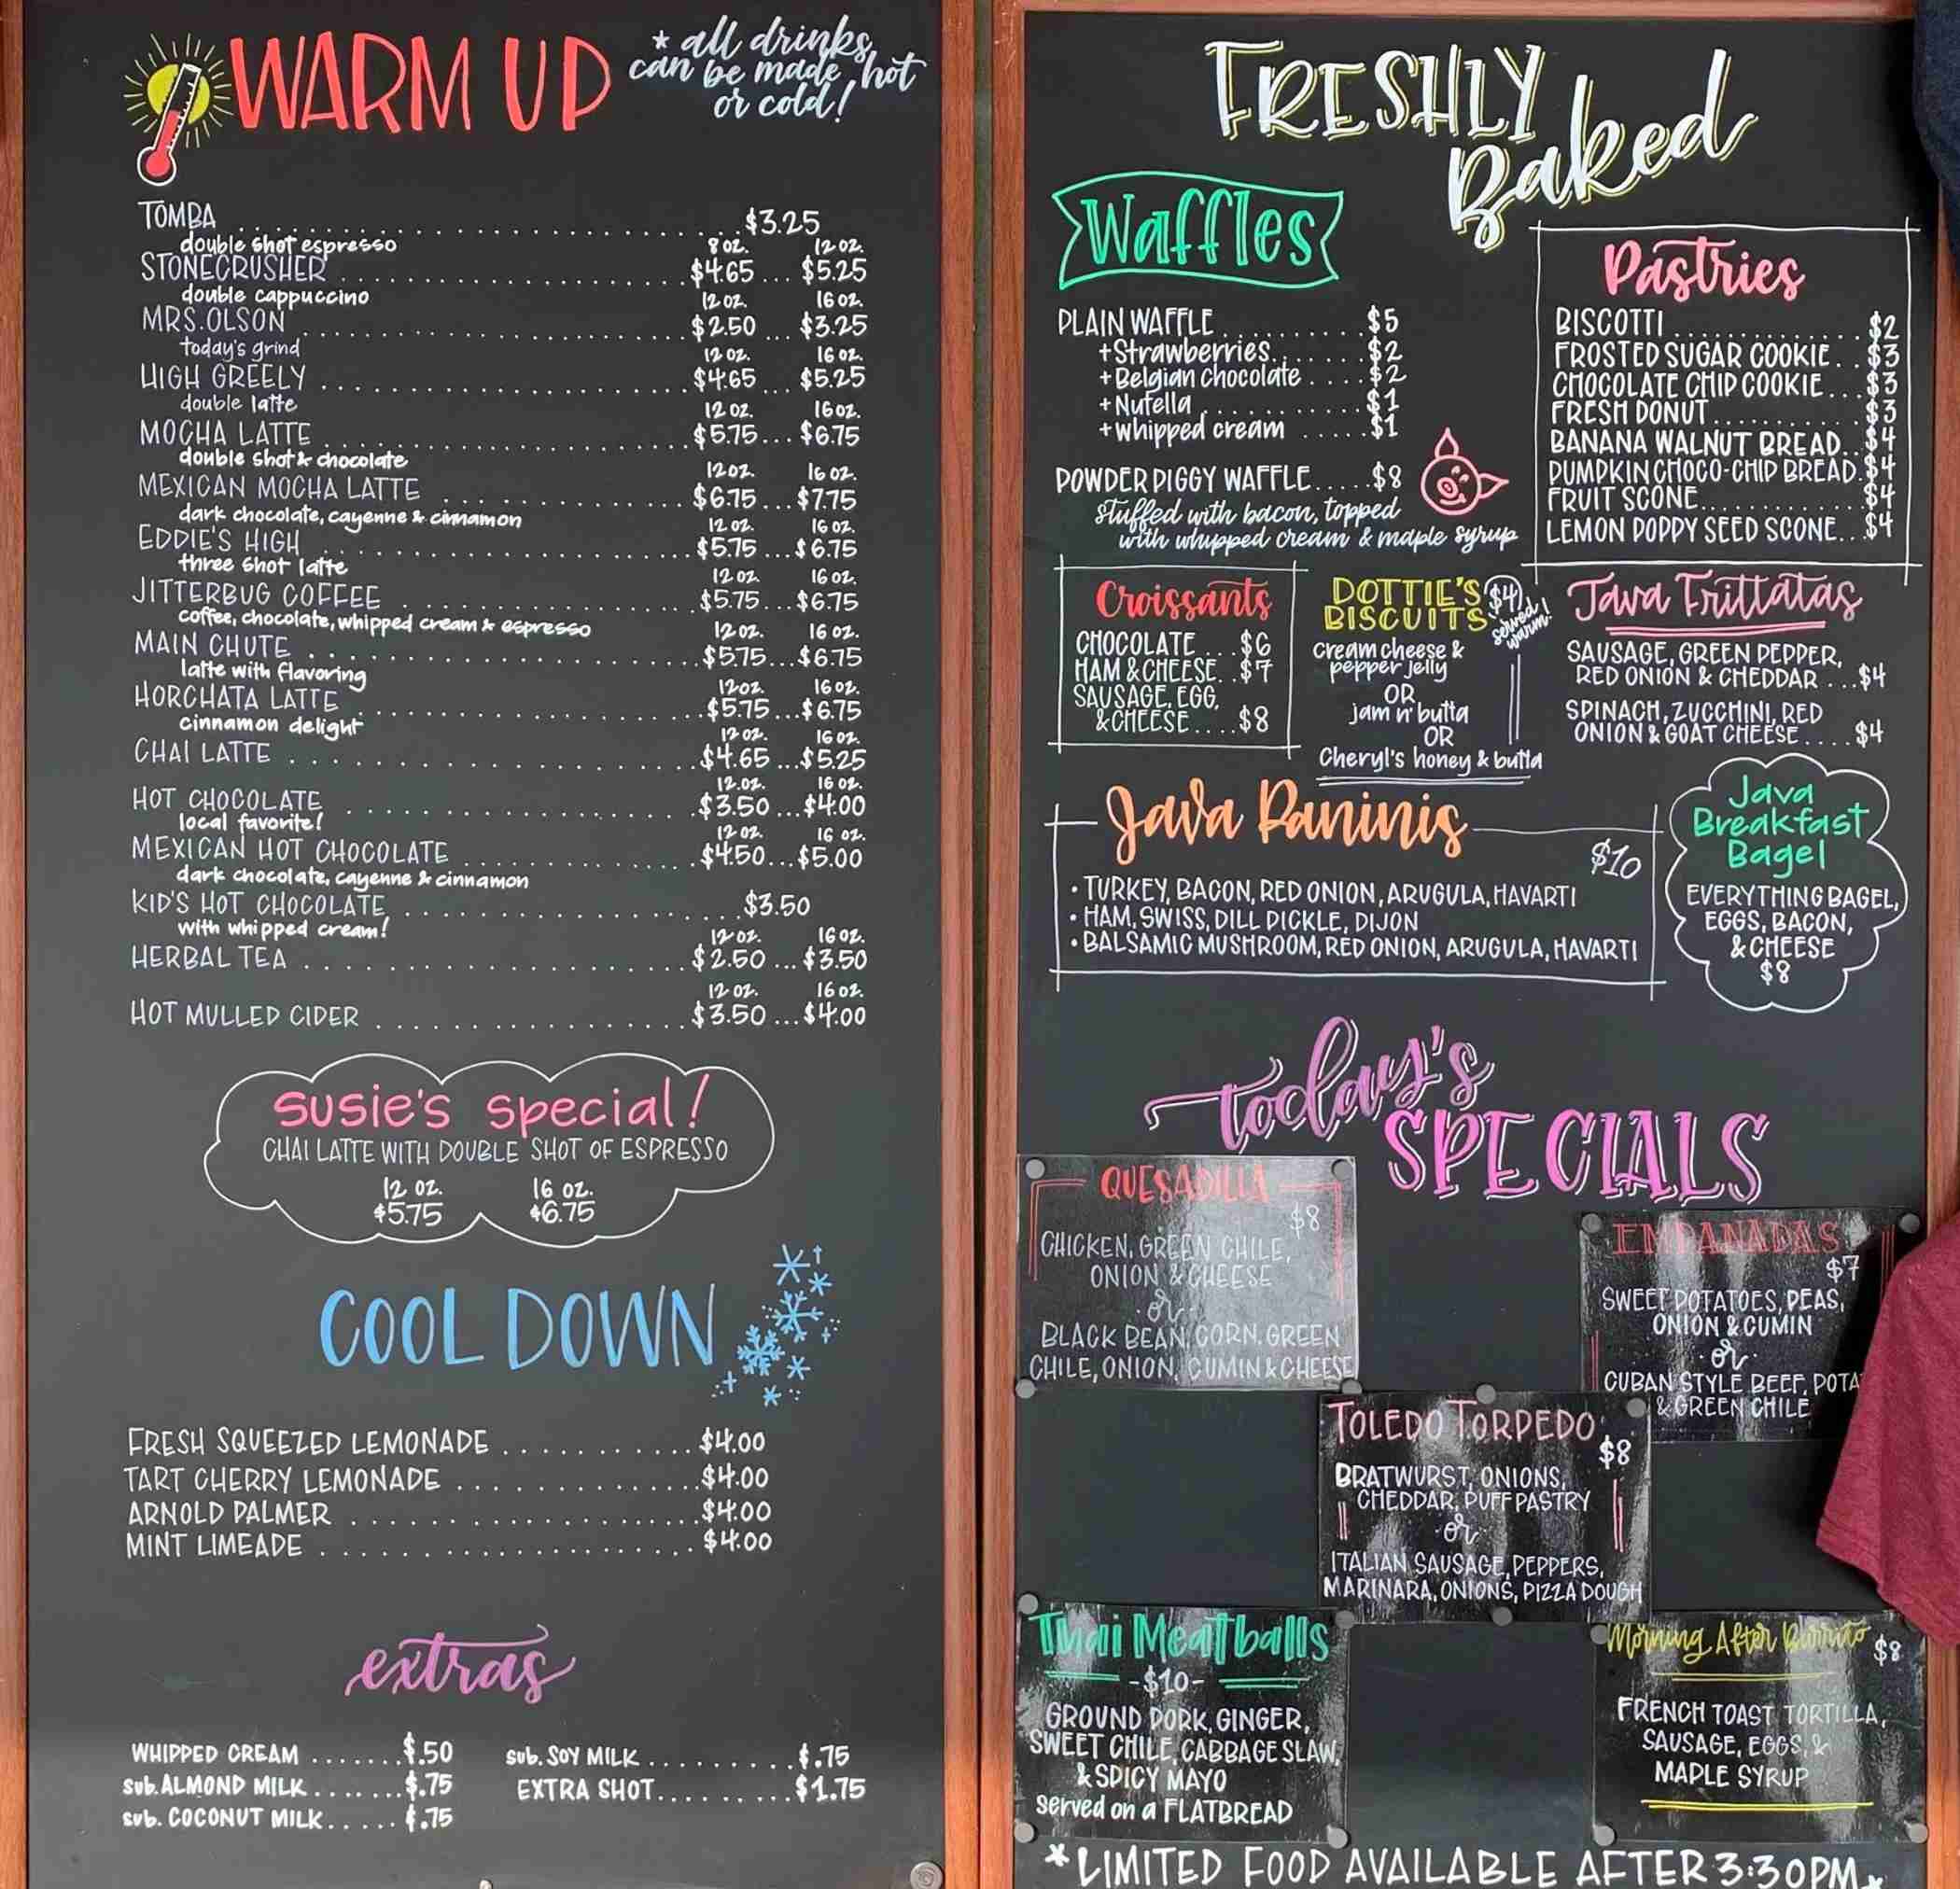 WARM UP
* all drinks
can be made hot
or cold!
TOMBA $3.25
double shot espresso
8 oz. 12 oz.
STONECRUSHER $4.65 $5.25
double cappuccino
12 oz. 16 oz.
MRS. OLSON $2.50 $3.25
today's grind
12 oz. 16 oz.
HIGH GREELY $4.65 $5.25
double latte
12 oz. 16 oz.
MOCHA LATTE $5.75 $6.75
double shot & chocolate
12 oz. 16 oz.
MEXICAN MOCHA LATTE $6.75 $7.75
dark chocolate, cayenne & cinnamon
12 oz. 16 oz.
EDDIE'S HIGH $5.75 $6.75
three shot latte
12 oz. 16 oz.
JITTERBUG COFFEE $5.75 $6.75
coffee, chocolate, whipped cream & espresso
12 oz. 16 oz.
MAIN CHUTE $5.75 $6.75
latte with flavoring
12 oz. 16 oz.
HORCHATA LATTE $5.75 $6.75
cinnamon delight
12 oz. 16 oz.
CHAI LATTE $4.65 $5.25
12 oz. 16 oz.
HOT CHOCOLATE $3.50 $4.00
local favorite!
12 oz. 16 oz.
MEXICAN HOT CHOCOLATE $4.50 $5.00
dark chocolate, cayenne & cinnamon
KID'S HOT CHOCOLATE $3.50
with whipped cream!
12 oz. 16 oz.
HERBAL TEA $2.50 $3.50
12 oz. 16 oz.
HOT MULLED CIDER $3.50 $4.00
susie's special!
CHAI LATTE WITH DOUBLE SHOT OF ESPRESSO
12 oz. 16 oz.
$5.75 $6.75
COOL DOWN
FRESH SQUEEZED LEMONADE $4.00
TART CHERRY LEMONADE $4.00
ARNOLD PALMER $4.00
MINT LIMEADE $4.00
extras
WHIPPED CREAM $.50
sub. ALMOND MILK $.75
sub. COCONUT MILK $.75
sub. SOY MILK $.75
EXTRA SHOT $1.75
FRESHLY
Baked
Waffles
PLAIN WAFFLE $5
+ Strawberries $2
+ Belgian Chocolate $2
+ Nutella $1
+ whipped cream $1
POWDER PIGGY WAFFLE $8
stuffed with bacon, topped
with whipped cream & maple syrup
Pastries
BISCOTTI $2
FROSTED SUGAR COOKIE $3
CHOCOLATE CHIP COOKIE $3
FRESH DONUT $3
BANANA WALNUT BREAD $4
PUMPKIN CHOCO-CHIP BREAD $4
FRUIT SCONE $4
LEMON POPPY SEED SCONE $4
Croissants
CHOCOLATE $6
HAM & CHEESE $7
SAUSAGE, EGG,
& CHEESE $8
DOTTIE'S
BISCUITS
$4
served
warm!
cream cheese &
pepper jelly
OR
jam n' butta
OR
Cheryl's honey & butta
Java Frittatas
SAUSAGE, GREEN PEPPER,
RED ONION & CHEDDAR $4
SPINACH, ZUCCHINI, RED
ONION & GOAT CHEESE $4
Java Paninis
$10
• TURKEY, BACON, RED ONION, ARUGULA, HAVARTI
• HAM, SWISS, DILL PICKLE, DIJON
• BALSAMIC MUSHROOM, RED ONION, ARUGULA, HAVARTI
Java
Breakfast
Bagel
EVERYTHING BAGEL,
EGGS, BACON,
& CHEESE
$8
today's
SPECIALS
QUESADILLA
$8
CHICKEN, GREEN CHILE,
ONION & CHEESE
or
BLACK BEAN, CORN, GREEN
CHILE, ONION, CUMIN & CHEESE
EMPANADAS
$7
SWEET POTATOES, PEAS,
ONION & CUMIN
or
CUBAN STYLE BEEF, POTA
& GREEN CHILE
TOLEDO TORPEDO
$8
BRATWURST, ONIONS,
CHEDDAR, PUFF PASTRY
or
ITALIAN SAUSAGE, PEPPERS,
MARINARA, ONIONS, PIZZA DOUGH
Thai Meatballs
-$10-
GROUND PORK, GINGER,
SWEET CHILE, CABBAGE SLAW,
& SPICY MAYO
served on a FLATBREAD
Morning After Burrito
$8
FRENCH TOAST TORTILLA,
SAUSAGE, EGGS, &
MAPLE SYRUP
* LIMITED FOOD AVAILABLE AFTER 3:30PM *